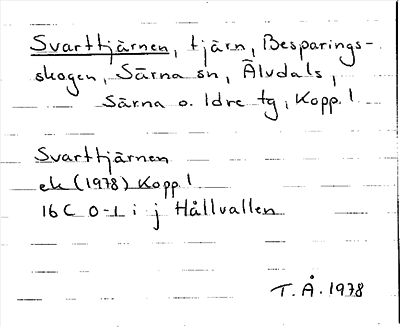 Svarttjärnen, tjärn, Besparings-
skogen, Särna sn, Älvdals,
Särna o. Idre tg, Kopp. l
Svarttjärnen
ek (1978) Kopp l
16 C 0-1 i j Hållvallen
T.Å. 1978